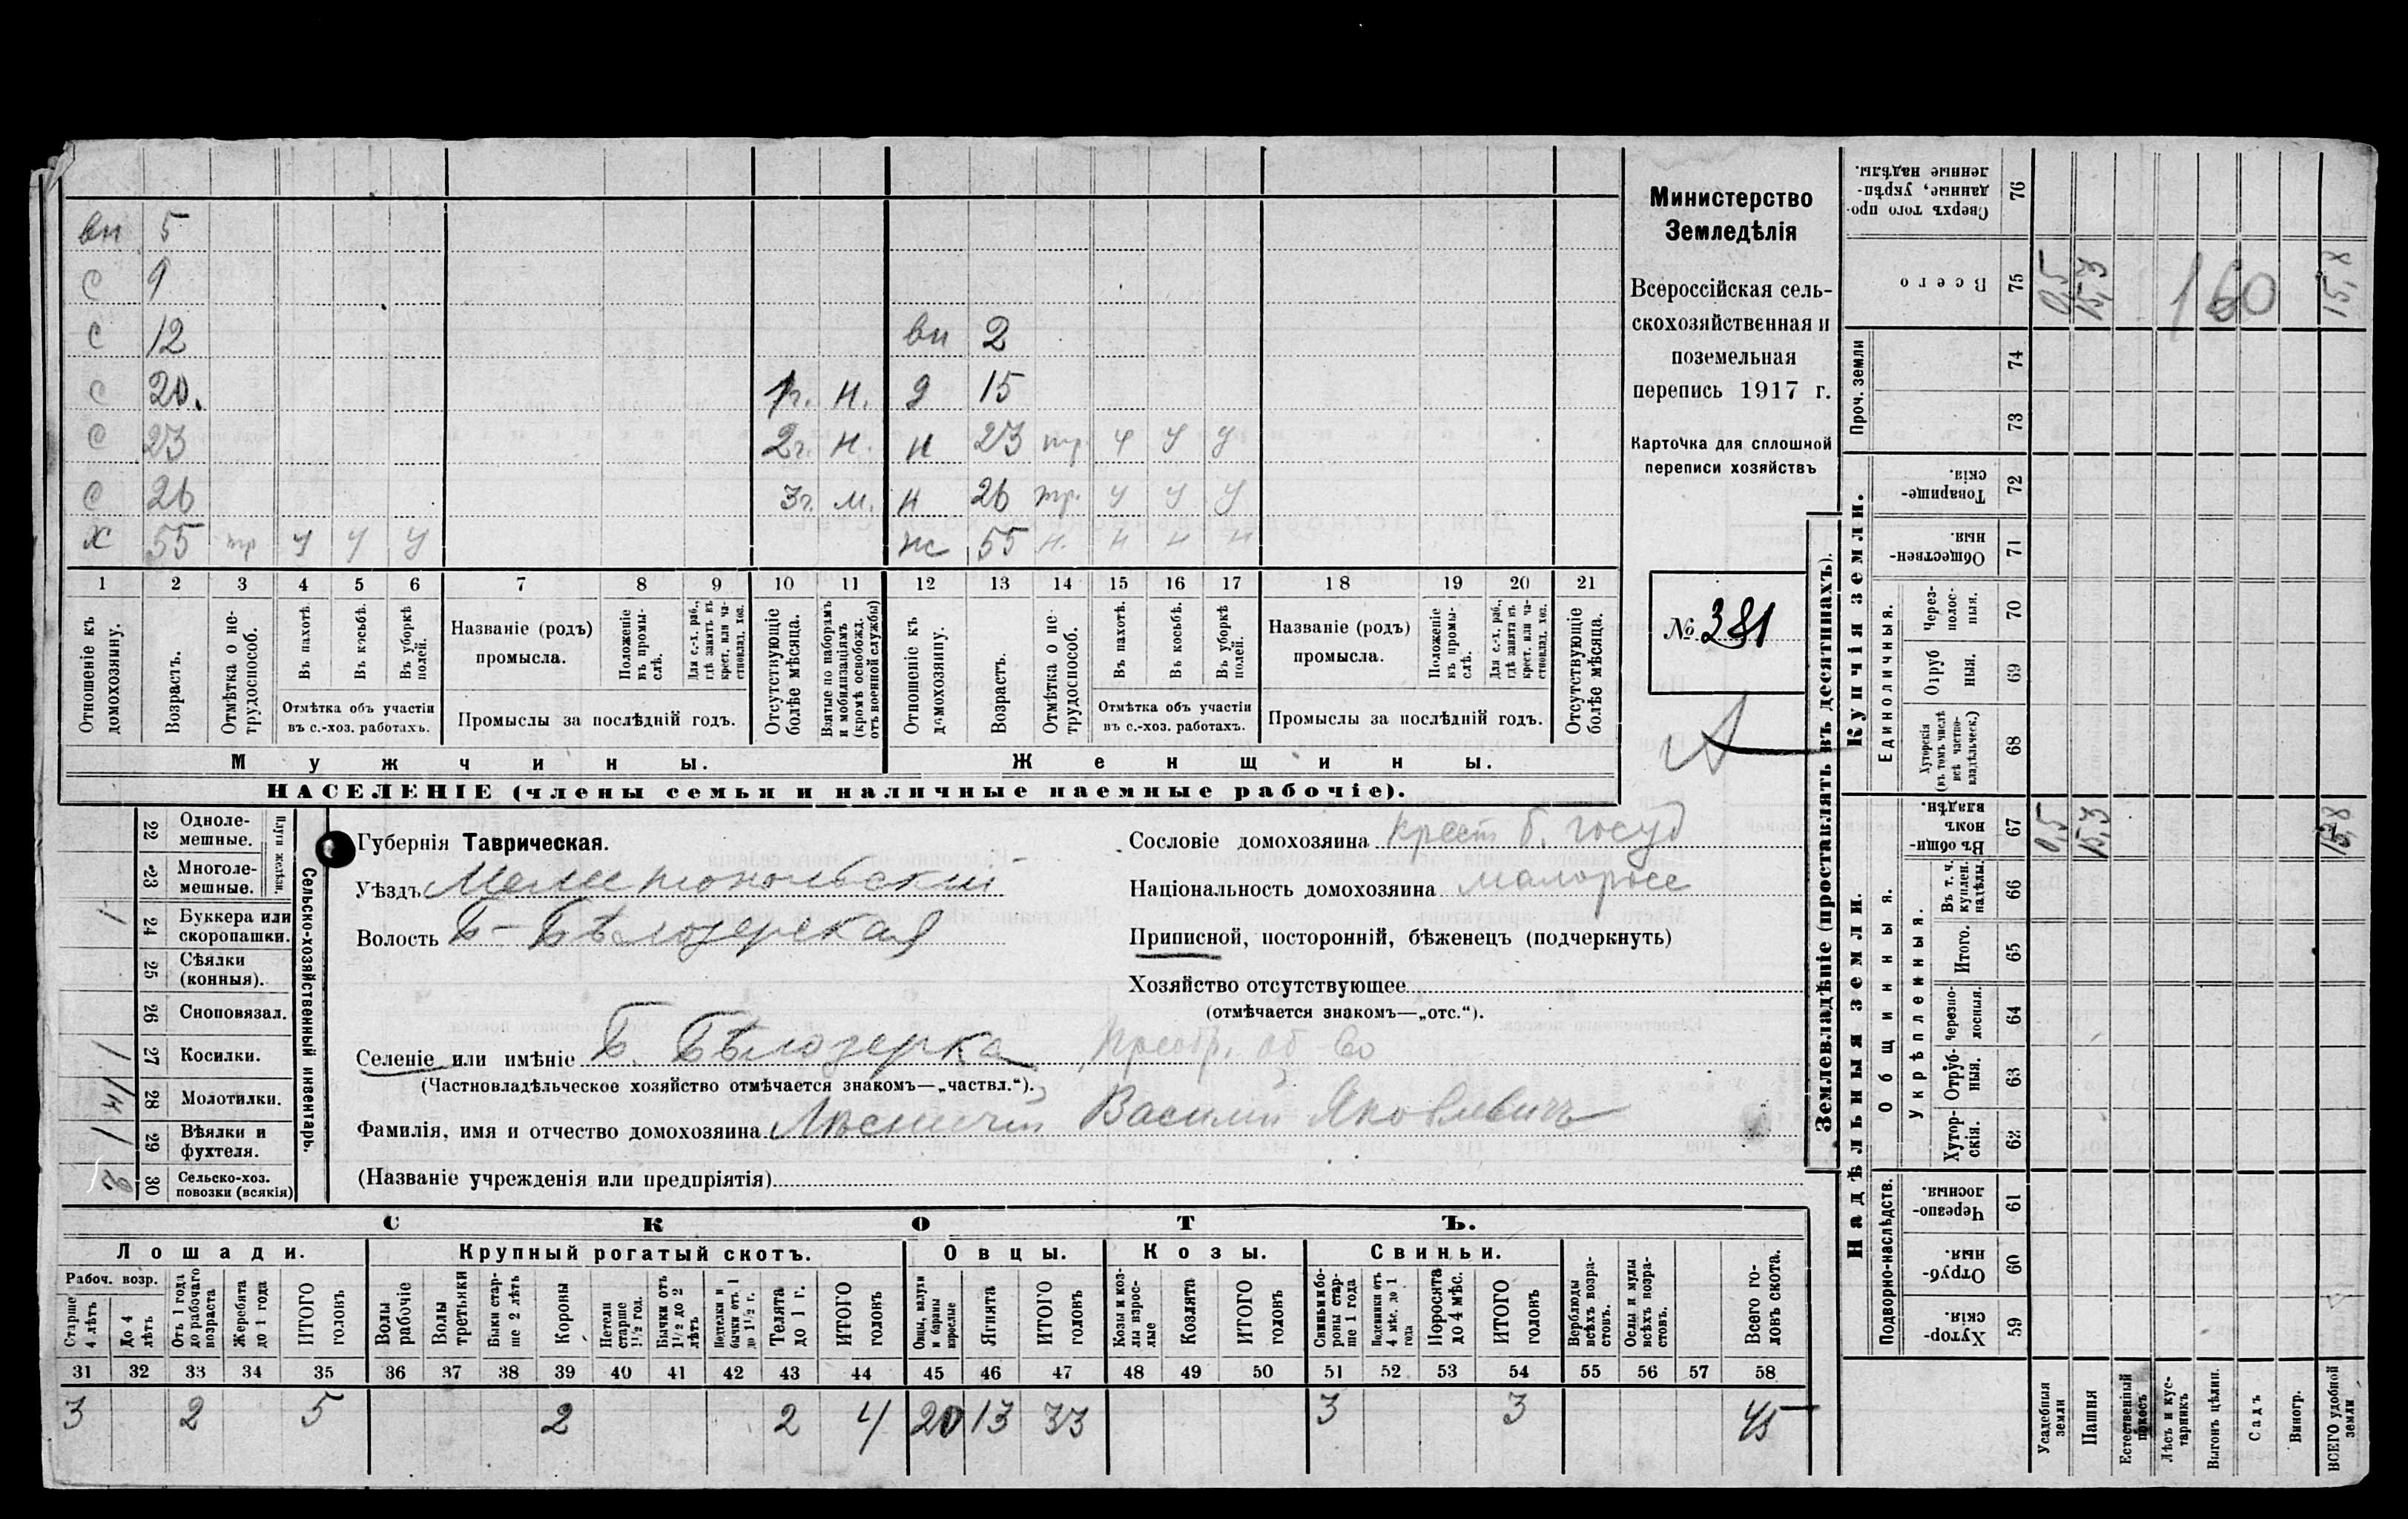 вн 5
с 9
с 12 вн 2
с 20. 1г. н. д 15
с 23 2г. н. н 23 тр. у у у
с 26 3г. м. н 26 тр. у у у
х 55 тр у у у ж 55 н. н н н
1 2 3 4 5 6 7 8 9 10 11 12 13 14 15 16 17 18 19 20 21
Отношеніе къ домохозяину.
Возрастъ.
Отмѣтка о нетрудоспособ.
Въ пахотѣ.
Въ косьбѣ.
Въ уборкѣ полей.
Отмѣтка объ участіи
въ с.-хоз. работахъ.
Названіе (родъ)
промысла.
Положеніе въ промыслѣ.
Для с.-х. раб., гдѣ занятъ въ крест. или частновлад. хоз.
Промыслы за послѣдній годъ.
Отсутствующіе болѣе мѣсяца.
Взятые по наборамъ и мобилизаціямъ (кромѣ освобожд. отъ военной службы)
Отношеніе къ домохозяину.
Возрастъ.
Отмѣтка о нетрудоспособ.
Въ пахотѣ.
Въ косьбѣ.
Въ уборкѣ полей.
Отмѣтка объ участіи
въ с.-хоз. работахъ.
Названіе (родъ)
промысла.
Положеніе въ промыслѣ.
Для с.-х. раб., гдѣ занята въ крест. или частновлад. хоз.
Промыслы за послѣдній годъ.
Отсутствующіе болѣе мѣсяца.
Мужчины.
Женщины.
НАСЕЛЕНІЕ (члены семьи и наличные наемные рабочіе).
Министерство
Земледѣлія
Всероссійская сель-
скохозяйственная и
поземельная
перепись 1917 г.
Карточка для сплошной
переписи хозяйствъ
№ 381
22 Однолемешные.
23 Многолемешные.
Плуги желѣзн.
24 Буккера или скоропашки. 1
25 Сѣялки (конныя).
26 Сноповязал.
27 Косилки. 1
28 Молотилки. 1/4
29 Вѣялки и фухтеля. 1
30 Сельско-хоз. повозки (всякія) 2
Сельско-хозяйственный инвентарь.
Губернія Таврическая.
Уѣздъ Мелитопольскій
Волость Б-Бѣлозерская
Селеніе или имѣніе Б. Бѣлозерка Преобр. об-во
(Частновладѣльческое хозяйство отмѣчается знакомъ—„частвл.“).
Фамилія, имя и отчество домохозяина Лѣсничій Василій Яковлевичъ
(Названіе учрежденія или предпріятія)
Сословіе домохозяина крест б. госуд
Національность домохозяина малоросс
Приписной, посторонній, бѣженецъ (подчеркнуть)
Хозяйство отсутствующее
(отмѣчается знакомъ—„отс.“).
СКОТЪ.
Лошади. Крупный рогатый скотъ. Овцы. Козы. Свиньи.
Рабоч. возр.
Старше 4 лѣтъ
До 4 лѣтъ
Отъ 1 года до рабочаго возраста
Жеребята до 1 года
ИТОГО головъ
Волы рабочіе
Волы третьяки
Быки старше 2 лѣтъ
Коровы
Нетели старше 1½ год.
Бычки отъ 1½ до 2 лѣтъ
Подтелки и бычки отъ 1 до 1½ г.
Телята до 1 г.
ИТОГО головъ
Овцы, валухи и бараны взрослые
Ягнята
ИТОГО головъ
Козы и козлы взрослые
Козлята
ИТОГО головъ
Свиньи и бороны старше 1 года
Подсвинки отъ 4 мѣс. до 1 года
Поросята до 4 мѣс.
ИТОГО головъ
Верблюды всѣхъ возрастовъ.
Ослы и мулы всѣхъ возрастовъ.
Всего головъ скота.
31 32 33 34 35 36 37 38 39 40 41 42 43 44 45 46 47 48 49 50 51 52 53 54 55 56 57 58
3 2 5 2 2 4 20 13 33 3 3 45
Землевладѣніе (проставлять въ десятинахъ).
Сверхъ того проданные, укрѣпленные надѣлы. 76
Всего 75 0,5 15,3 160 15,8
Проч. земли 74
73
Купчія земли.
Товарищескія. 72
Общественныя. 71
Единоличныя.
Черезполосныя. 70
Отрубныя. 69
Хуторскія (въ томъ числѣ всѣ частновладѣльческ.) 68
Надѣльныя земли.
Общинныя.
Въ общинномъ владѣн. 67 0,5 15,3 15,8
Укрѣпленныя.
Въ т. ч. куплен. надѣлы 66
Итого. 65
Черезполосныя. 64
Отрубныя. 63
Хуторскія. 62
Подворно-наслѣдств.
Черезполосныя. 61
Отрубныя. 60
Хуторскія. 59
Усадебныя земли
Пашня
Естественный покосъ
Лѣсъ и кустарникъ
Выгонъ цѣлин.
Садъ
Виногр.
ВСЕГО удобной земли